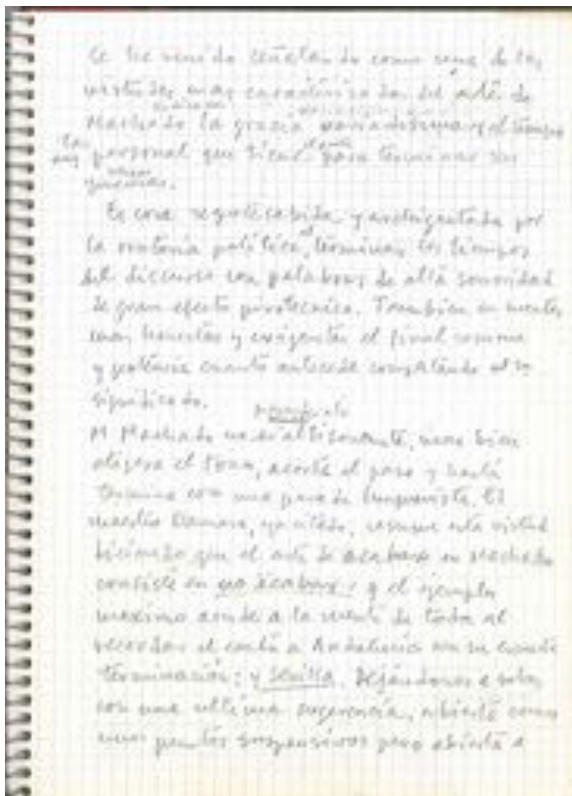 Se ha venido señalando como una de las
virtudes mas caracterizadas del arte de
Machado la gracia y al tiempo
personal que tiene para terminar sus
poemas.
Es cosa repetecabida y por
la oratoria politica, terminar los tiempos
del discurso con palabras de alta sonoridad
de gran efecto pirotecnico. Tambien en mentes
mas honestas y exigentes el final resume
y potencia cuanto antecede completando el
significado.
M Machado no es altisonante, mas bien
aligera el tono, acorta el paso y hasta
termina con una . El
maestro Damaso, ya citado, resume esta virtud
diciendo que el arte de acabar en Machado
consiste en no acabar: y el ejemplo
maximo acude a la mente de todos al
recordar el canto a Andalucia con su
terminación: y Sevilla. Dejándonos a solas
con una ultima sugerencia, abierta como
unos puntos suspensivos pero abierta a